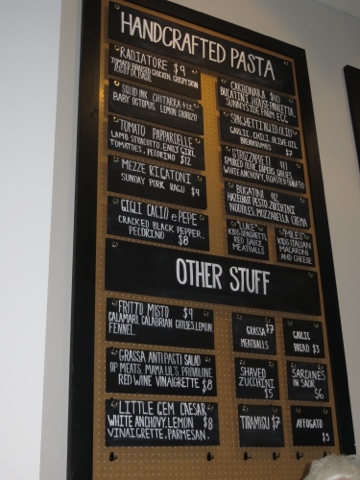 HANDCRAFTED PASTA
RADIATORE $9
TOMATO BRAISED CHICKEN, CRISPY SKIN
SQUID INK CHITARRA
BABY OCTOPUS, LEMON, CHORIZO
TOMATO PAPPARDELLE
LAMB STUCOTTO, EARLY GIRL
TOMATOES, PECORINO $12
MEZZE RIGATONI
SUNDAY PORK RAGU $9
GIGLI CACIO e PEPE
CRACKED BLACK PEPPER
PECORINO $8
CARBONARA $10
BUCATINI, HOUSE PANCETTA,
SUNNYSIDE FARM EGG
SPAGHETTI AGLIO OLIO
GARLIC, CHILI, OLIVE OIL
BREADCRUMBS $7
STROZZAPRETI
WHITE ANCHOVY, ROASTED TOMATO
BUCATINI
HAZELNUT PESTO, ZUCCHINI
NOODLES, MOZZARELLA CREMA
"LUKE"
KIDS SPAGHETTI
RED SAUCE
MEATBALLS
"MILES"
KIDS ITALIAN
MACARONI
AND CHEESE
OTHER STUFF
FRITTO MISTO $9
CALAMARI, CALABRIAN CHILIES, LEMON,
FENNEL
GRASSA ANTIPASTI SALAD
OP MEATS, MAMA LIL'S, PROVOLONE
RED WINE VINAIGRETTE $8
LITTLE GEM CAESAR
WHITE ANCHOVY, LEMON $8
VINAIGRETTE, PARMESAN
GRASSA $7
MEATBALLS
GARLIC
BREAD $3
SHAVED
ZUCCHINI
$5
SARDINES
IN SAOR
$6
TIRAMISU $7
AFFOGATO
$5